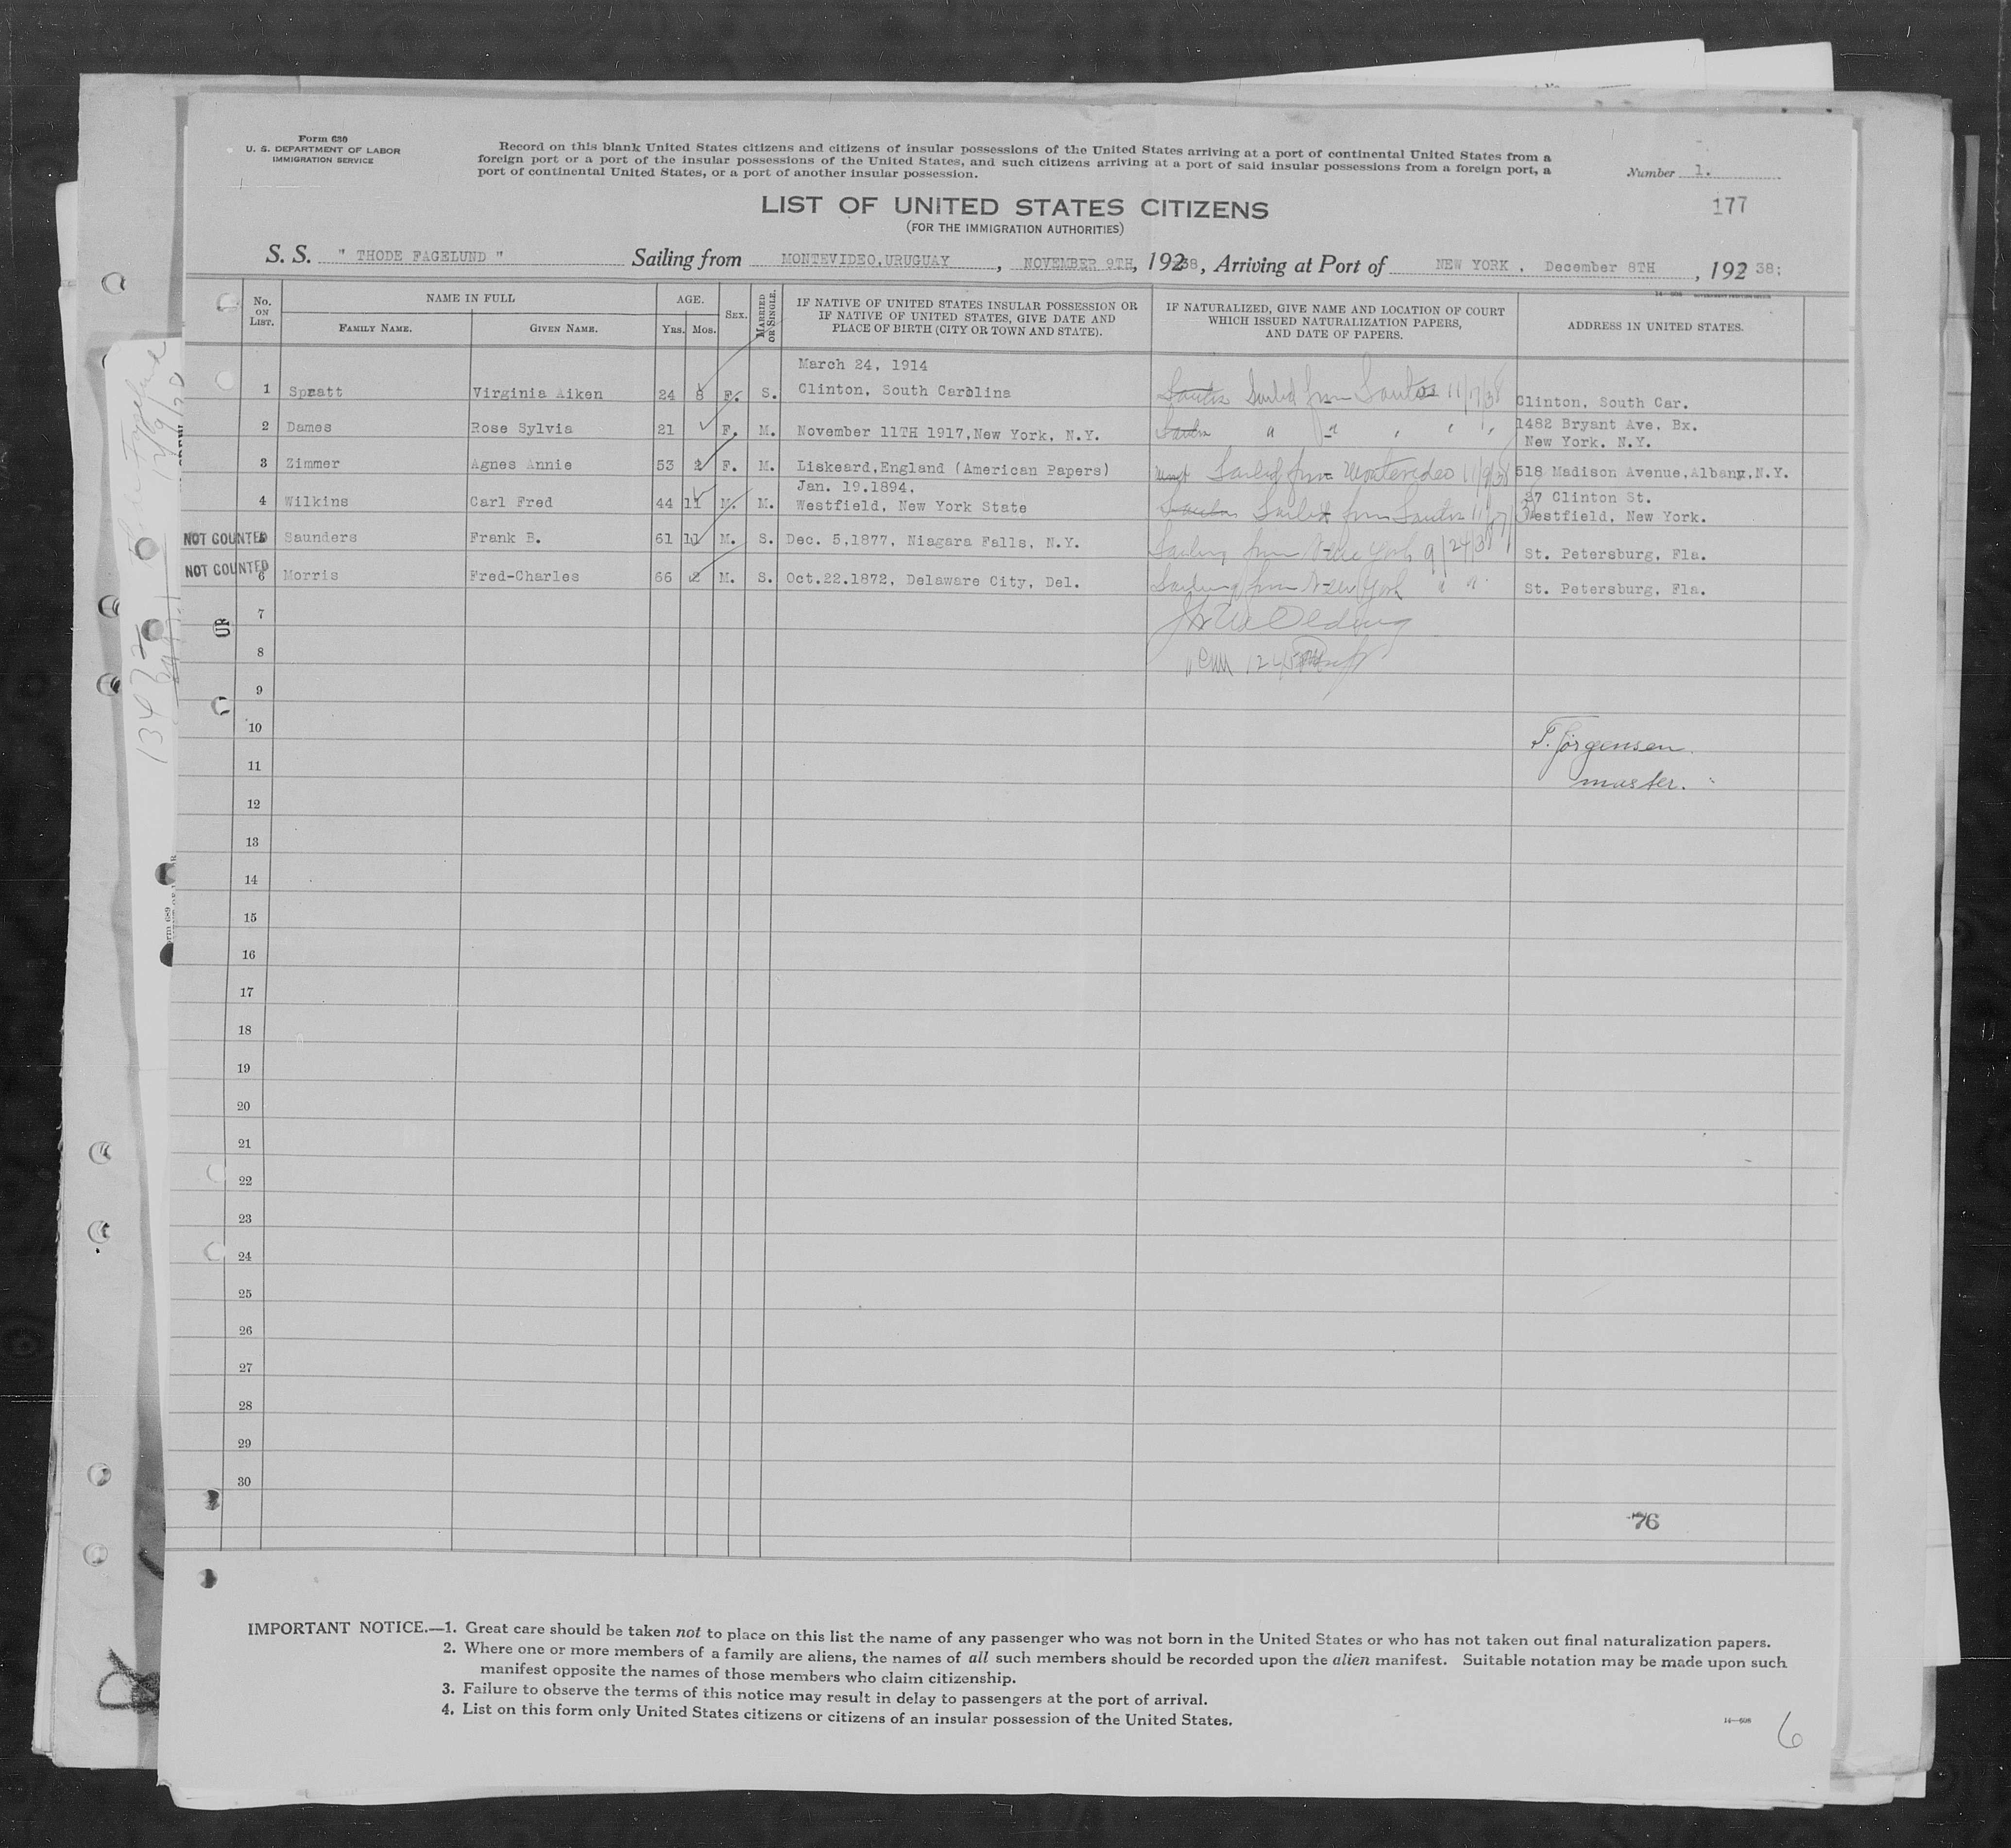 Form 630
U. S. DEPARTMENT OF LABOR
IMMIGRATION SERVICE
Record on this blank United States citizens and citizens of insular possessions of the United States arriving at a port of continental United States from a
foreign port or a port of the insular possessions of the United States, and such citizens arriving at a port of said insular possessions from a foreign port, a
port of continental United States, or a port of another insular possession.
Number 1.
177
LIST OF UNITED STATES CITIZENS
(FOR THE IMMIGRATION AUTHORITIES)
S. S. " THODE FAGELUND " Sailing from MONTEVIDEO,URUGUAY , NOVEMBER 9TH, 19238, Arriving at Port of NEW YORK . December 8TH , 192 38:
No. ON LIST. NAME IN FULL AGE. SEX. MARRIED OR SINGLE.
FAMILY NAME. GIVEN NAME. YRS. MOS.
IF NATIVE OF UNITED STATES INSULAR POSSESSION OR
IF NATIVE OF UNITED STATES, GIVE DATE AND
PLACE OF BIRTH (CITY OR TOWN AND STATE).
IF NATURALIZED, GIVE NAME AND LOCATION OF COURT
WHICH ISSUED NATURALIZATION PAPERS,
AND DATE OF PAPERS.
ADDRESS IN UNITED STATES.
March 24, 1914
1 Spratt Virginia Aiken 24 8 F. S. Clinton, South Carolina Santos Sailed from Santos 11/17/38 Clinton, South Car.
2 Dames Rose Sylvia 21 F. M. November 11TH 1917,New York, N.Y. Santos " " " " " 1482 Bryant Ave. Bx.
New York. N.Y.
3 Zimmer Agnes Annie 53 2 F. M. Liskeard,England (American Papers) Sailed from Montevideo 11/9/38 518 Madison Avenue,Albany,N.Y.
Jan. 19.1894. 37 Clinton St.
4 Wilkins Carl Fred 44 11 M. M. Westfield, New York State Santos Sailed from Santos 11/17/38 Westfield, New York.
NOT COUNTED 5 Saunders Frank B. 61 11 M. S. Dec. 5,1877, Niagara Falls, N.Y. Sailing from New York 9/24/38 St. Petersburg, Fla.
NOT COUNTED 6 Morris Fred-Charles 66 2 M. S. Oct.22.1872, Delaware City, Del. Sailing from New York " " St. Petersburg, Fla.
7
8
9
10
T. Jörgensen.
11
master.
12
13
14
15
16
17
18
19
20
21
22
23
24
25
26
27
28
29
30
76
IMPORTANT NOTICE.—1. Great care should be taken not to place on this list the name of any passenger who was not born in the United States or who has not taken out final naturalization papers.
2. Where one or more members of a family are aliens, the names of all such members should be recorded upon the alien manifest. Suitable notation may be made upon such
manifest opposite the names of those members who claim citizenship.
3. Failure to observe the terms of this notice may result in delay to passengers at the port of arrival.
4. List on this form only United States citizens or citizens of an insular possession of the United States.
14—608
6